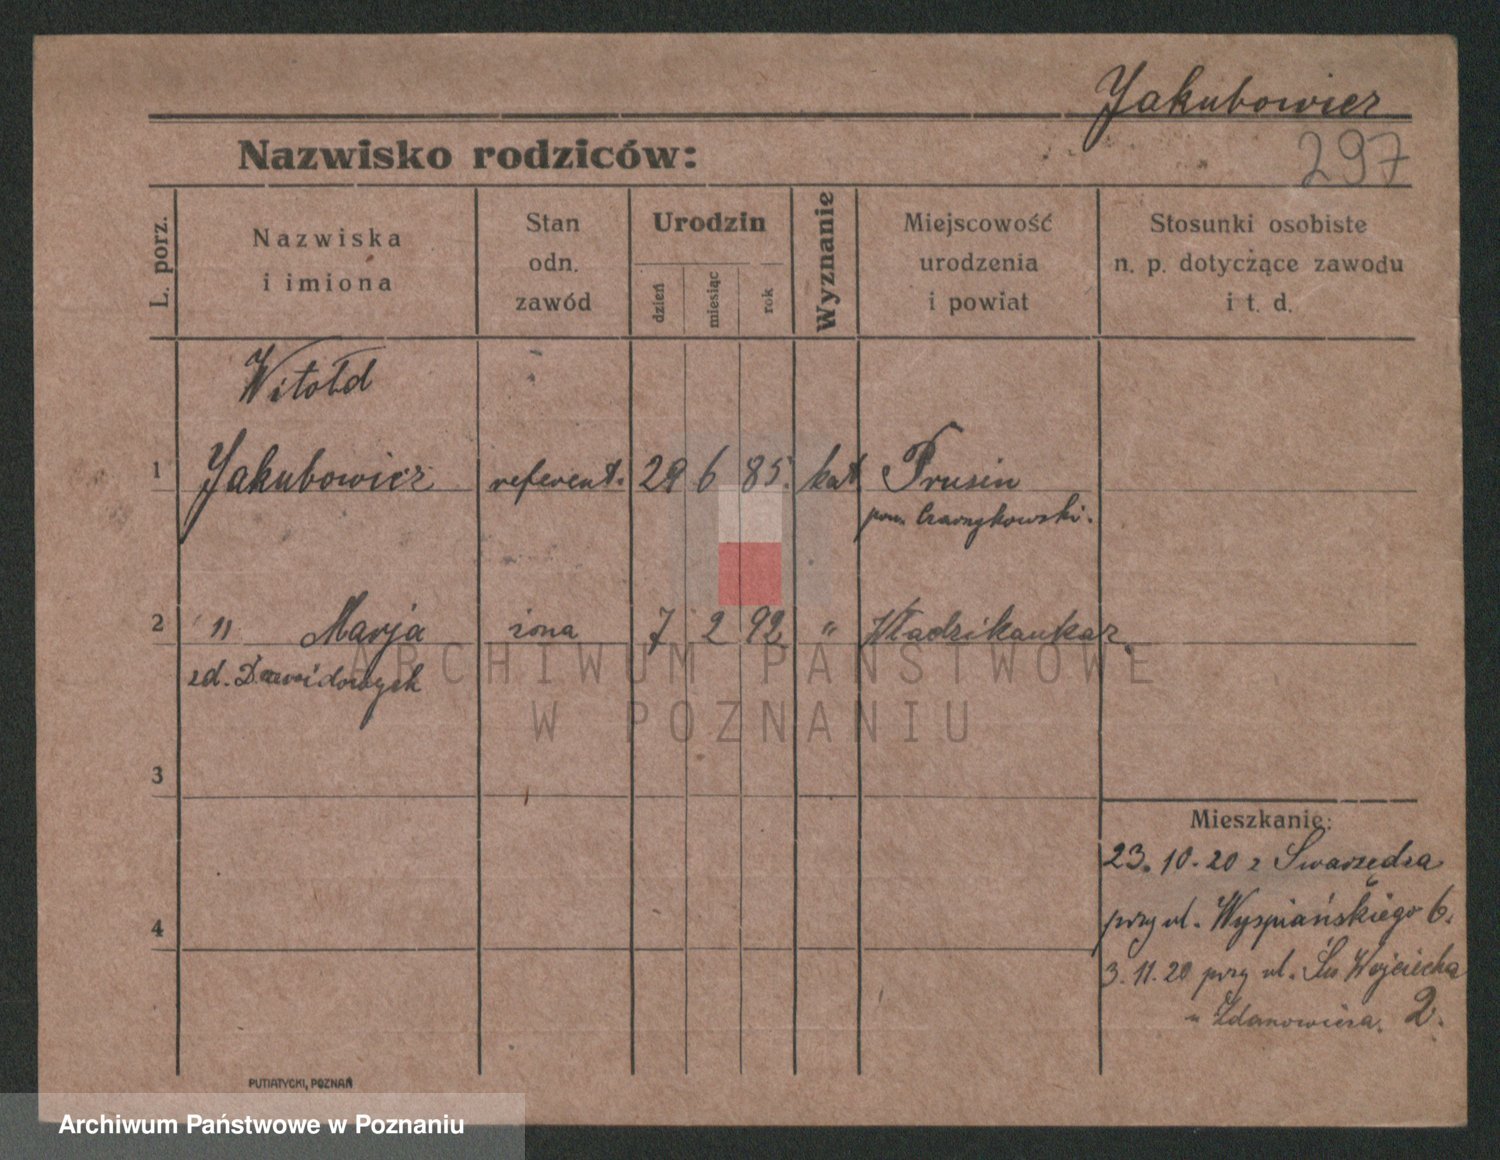 Jakubowicz
297
Nazwisko rodziców:
L. porz.
Nazwiska
i imiona
Stan
odn.
zawód
Urodzin
dzień
miesiąc
rok
Wyznanie
Miejscowość
urodzenia
i powiat
Stosunki osobiste
n. p. dotyczące zawodu
i t. d.
Witołd
1 Jakubowicz referent. 29 6 85. kat Prusin
pow. Czarnykowski.
2 " Marja żona 7 2 92 " Władzikaukaz.
zd. Dawidowych
3
4
Mieszkanie:
23. 10. 20 z Swarzędza
przy ul. Wyspiańskiego 6.
3. 11. 20 przy ul. Św Wojciecha
u Zdanowicza. 2.
PUTIATYCKI, POZNAŃ
ARCHIWUM PAŃSTWOWE
W POZNANIU
Archiwum Państwowe w Poznaniu